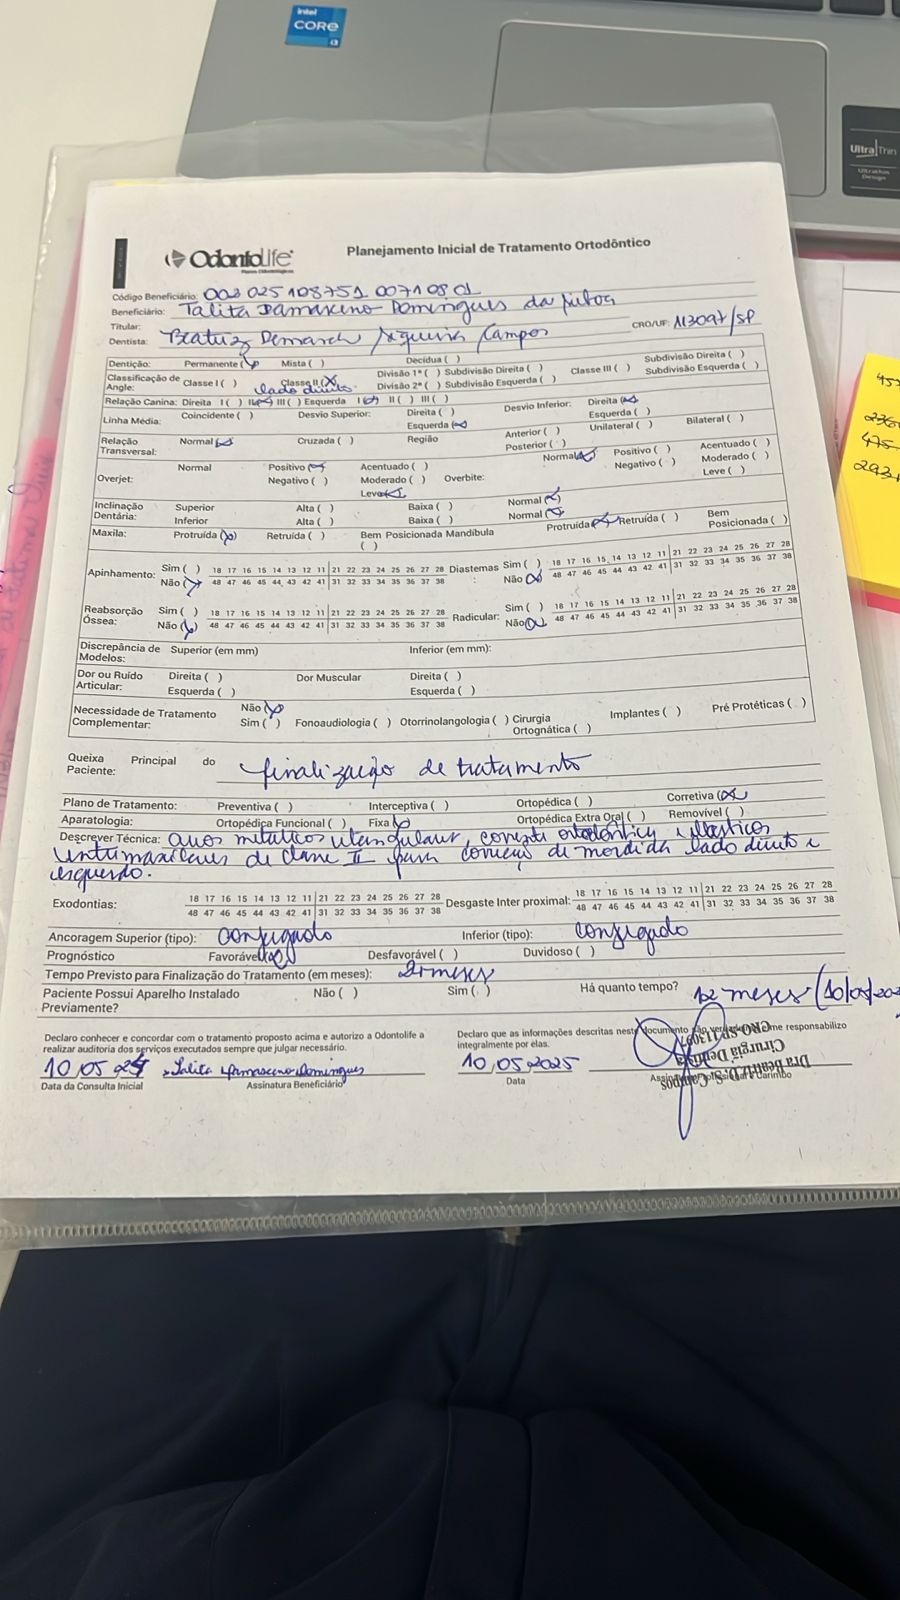 intel
CORE
i3
Ultra Thin
Ultrathin
Design
OdontoLife
Planos Odontológicos
Planejamento Inicial de Tratamento Ortodôntico
Código Beneficiário: 002 025 108751 0071 08 01
Beneficiário: Talita Damasceno Domingues da
Titular:
Dentista: Beatriz Demarch Siqueira Campos CRO/UF: 113097/SP
Dentição: Permanente (x) Mista ( ) Decídua ( )
Classificação de Angle: Classe I ( ) Classe II (X) lado direito Divisão 1ª ( ) Subdivisão Direita ( ) Divisão 2ª ( ) Subdivisão Esquerda ( ) Classe III ( ) Subdivisão Direita ( ) Subdivisão Esquerda ( )
Relação Canina: Direita I ( ) II (x) III ( ) Esquerda I (x) II ( ) III ( )
Linha Média: Coincidente ( ) Desvio Superior: Direita ( ) Esquerda (x) Desvio Inferior: Direita (x) Esquerda ( )
Relação Transversal: Normal (x) Cruzada ( ) Região Anterior ( ) Posterior ( ) Unilateral ( ) Bilateral ( )
Overjet: Normal Positivo (x) Negativo ( ) Acentuado ( ) Moderado ( ) Leve (x) Overbite: Normal (x) Positivo ( ) Negativo ( ) Acentuado ( ) Moderado ( ) Leve ( )
Inclinação Dentária: Superior Alta ( ) Baixa ( ) Normal (x)
Inferior Alta ( ) Baixa ( ) Normal (x)
Maxila: Protruída (x) Retruída ( ) Bem Posicionada ( ) Mandíbula Protruída (x) Retruída ( ) Bem Posicionada ( )
Apinhamento: Sim ( ) 18 17 16 15 14 13 12 11 21 22 23 24 25 26 27 28 Diastemas Sim ( ) 18 17 16 15 14 13 12 11 21 22 23 24 25 26 27 28
Não (x) 48 47 46 45 44 43 42 41 31 32 33 34 35 36 37 38 Não (x) 48 47 46 45 44 43 42 41 31 32 33 34 35 36 37 38
Reabsorção Óssea: Sim ( ) 18 17 16 15 14 13 12 11 21 22 23 24 25 26 27 28 Radicular: Sim ( ) 18 17 16 15 14 13 12 11 21 22 23 24 25 26 27 28
Não (x) 48 47 46 45 44 43 42 41 31 32 33 34 35 36 37 38 Não (x) 48 47 46 45 44 43 42 41 31 32 33 34 35 36 37 38
Discrepância de Modelos: Superior (em mm) Inferior (em mm):
Dor ou Ruído Articular: Direita ( ) Esquerda ( ) Dor Muscular Direita ( ) Esquerda ( )
Necessidade de Tratamento Complementar: Não (x) Sim ( ) Fonoaudiologia ( ) Otorrinolangologia ( ) Cirurgia Ortognática ( ) Implantes ( ) Pré Protéticas ( )
Queixa Principal do Paciente: finalização de tratamento
Plano de Tratamento: Preventiva ( ) Interceptiva ( ) Ortopédica ( ) Corretiva (x)
Aparatologia: Ortopédica Funcional ( ) Fixa (x) Ortopédica Extra Oral ( ) Removível ( )
Descrever Técnica: arcos metálicos retangulares, corrente ortodôntica, elásticos
intermaxilares de classe II para correção de mordida lado direito e
esquerdo.
Exodontias: 18 17 16 15 14 13 12 11 21 22 23 24 25 26 27 28 Desgaste Inter proximal: 18 17 16 15 14 13 12 11 21 22 23 24 25 26 27 28
48 47 46 45 44 43 42 41 31 32 33 34 35 36 37 38 48 47 46 45 44 43 42 41 31 32 33 34 35 36 37 38
Ancoragem Superior (tipo): conjugado Inferior (tipo): conjugado
Prognóstico Favorável (x) Desfavorável ( ) Duvidoso ( )
Tempo Previsto para Finalização do Tratamento (em meses): meses
Paciente Possui Aparelho Instalado Previamente? Não ( ) Sim ( ) Há quanto tempo? 12 meses (10/05/202
Declaro conhecer e concordar com o tratamento proposto acima e autorizo a Odontolife a
realizar auditoria dos serviços executados sempre que julgar necessário.
Declaro que as informações descritas neste documento são verdadeiras e me responsabilizo
integralmente por elas.
10 05 Talita Damasceno Domingues
Data da Consulta Inicial Assinatura Beneficiário
10/05/2025
Data
Assinatura Profissional e Carimbo
Dra Beatriz D. S. Campos
Cirurgiã Dentista
CRO-SP 113097
475